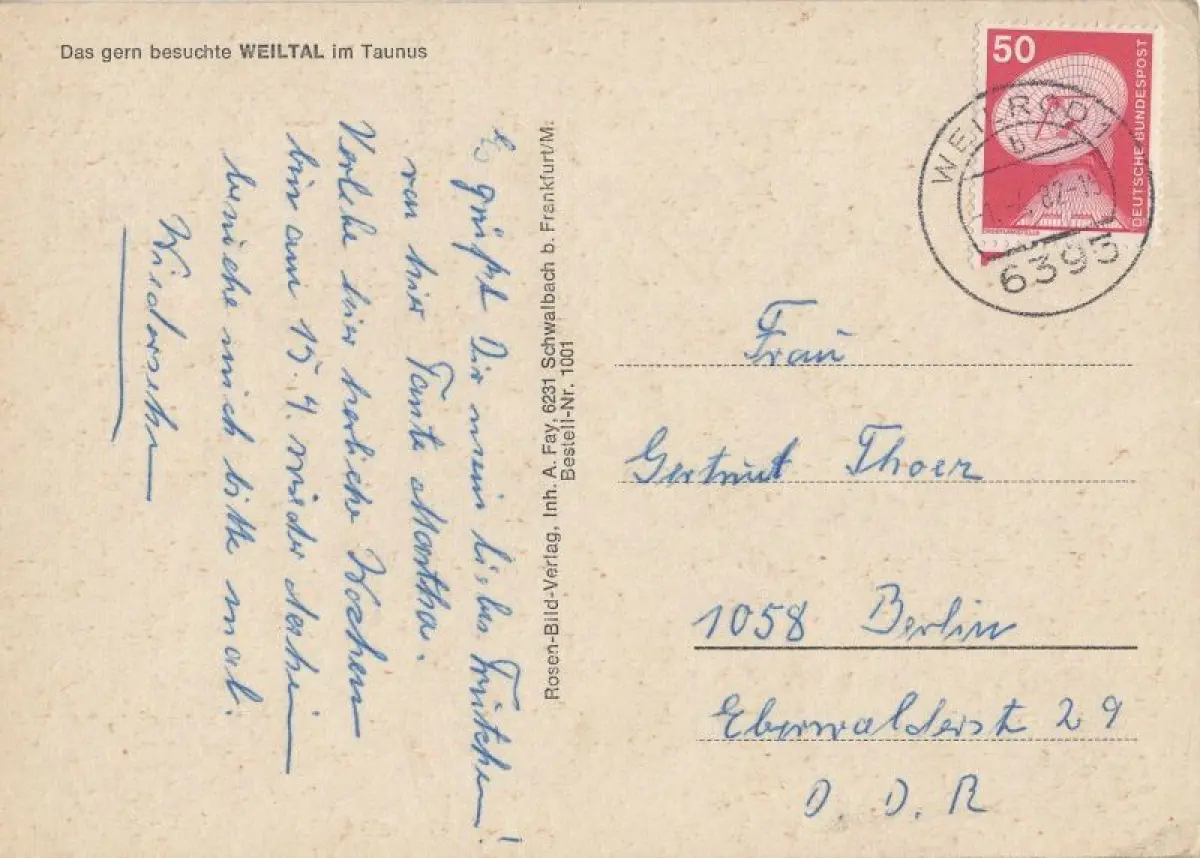 Das gern besuchte WEILTAL im Taunus
Es grüßt Dir mein liebes Trutchen!
von hier Tante Martha.
Verlebe hier herliche Wochen
bin am 15. 4. wieder daheim
besuche mich bitte mal.
Wiedersehn
Rosen-Bild-Verlag, Inh. A. Fay, 6231 Schwalbach b. Frankfurt/M.
Bestell-Nr. 1001
50
DEUTSCHE BUNDESPOST
WEILROD 1
b
6395
Frau
Gertrut Thoer
1058 Berlin
Eberwalderst 29
D. D. R